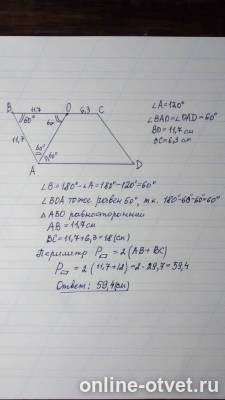 B 11,7 O 6,3 C
60° 60°
11,7
60° 60°
A D
∠A=120°
∠BAO=∠OAD=60°
BO=11,7 см
BC=6,3 см
∠B=180°-∠A=180°-120°=60°
∠BOA тоже равен 60°, т.к. 180°-60°-60°=60°
△ABO равносторонний
AB=11,7см
BC=11,7+6,3=18(см)
Периметр P▱=2(AB+BC)
P▱=2(11,7+18)=2·29,7=59,4
Ответ: 59,4(см)
online-otvet.ru